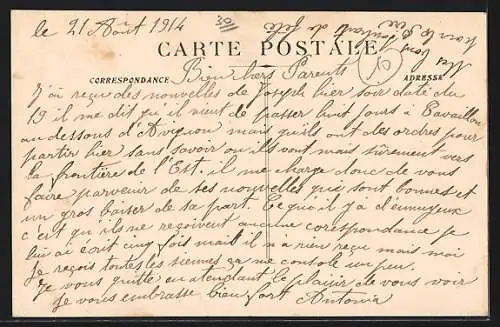 le 21 Août 1914
301
Mes bons souhaits de fête
pour le père
10
CARTE POSTALE
CORRESPONDANCE
ADRESSE
Bien chers Parents
J'ai reçue des nouvelles de Joseph hier soir daté du
19 il me dit qu'il vient de passer huit jours à Cavaillon
au dessous d'Avignon mais qu'ils ont des ordres pour
partir hier sans savoir ou ils vont mais sûrement vers
la frontière de l'Est. il me charge donc de vous
faire parvenir de ses nouvelles qui sont bonnes et
un gros baiser de sa part. Ce qu'il y a d'ennuyeux
c'est qu'ils ne reçoivent aucune corespondance je
lui ai écrit cinq fois mais il n'a rien reçu mais moi
je reçois toutes les siennes ça me console un peu.
Je vous quitte en attendant le plaisir de vous voir
je vous embrasse bien fort Antonia